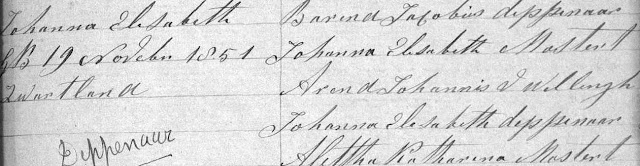 Johanna Elisabeth
GB 19 Novebr 1851
Zwartland
Dippenaar
Barend Jacobus dippenaar
Johanna Elisabeth Mostert
Arend Johannis J Willingh
Johanna Elisabeth dippenaar
Alettha Katharina Mostert